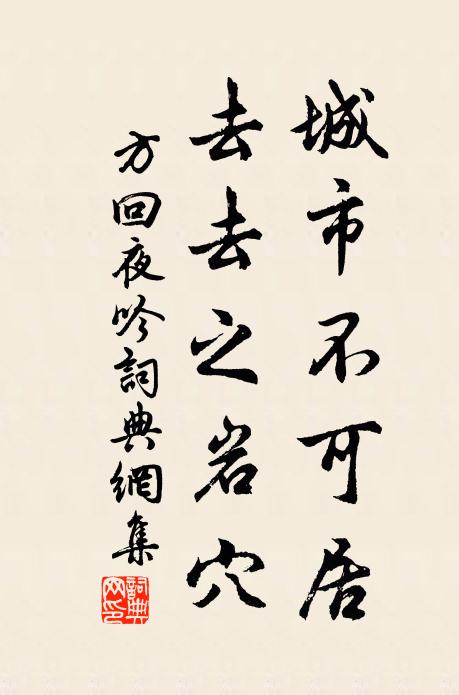 城市不可居
去去之岩穴
方回夜吟詞典網集
詞典
网印